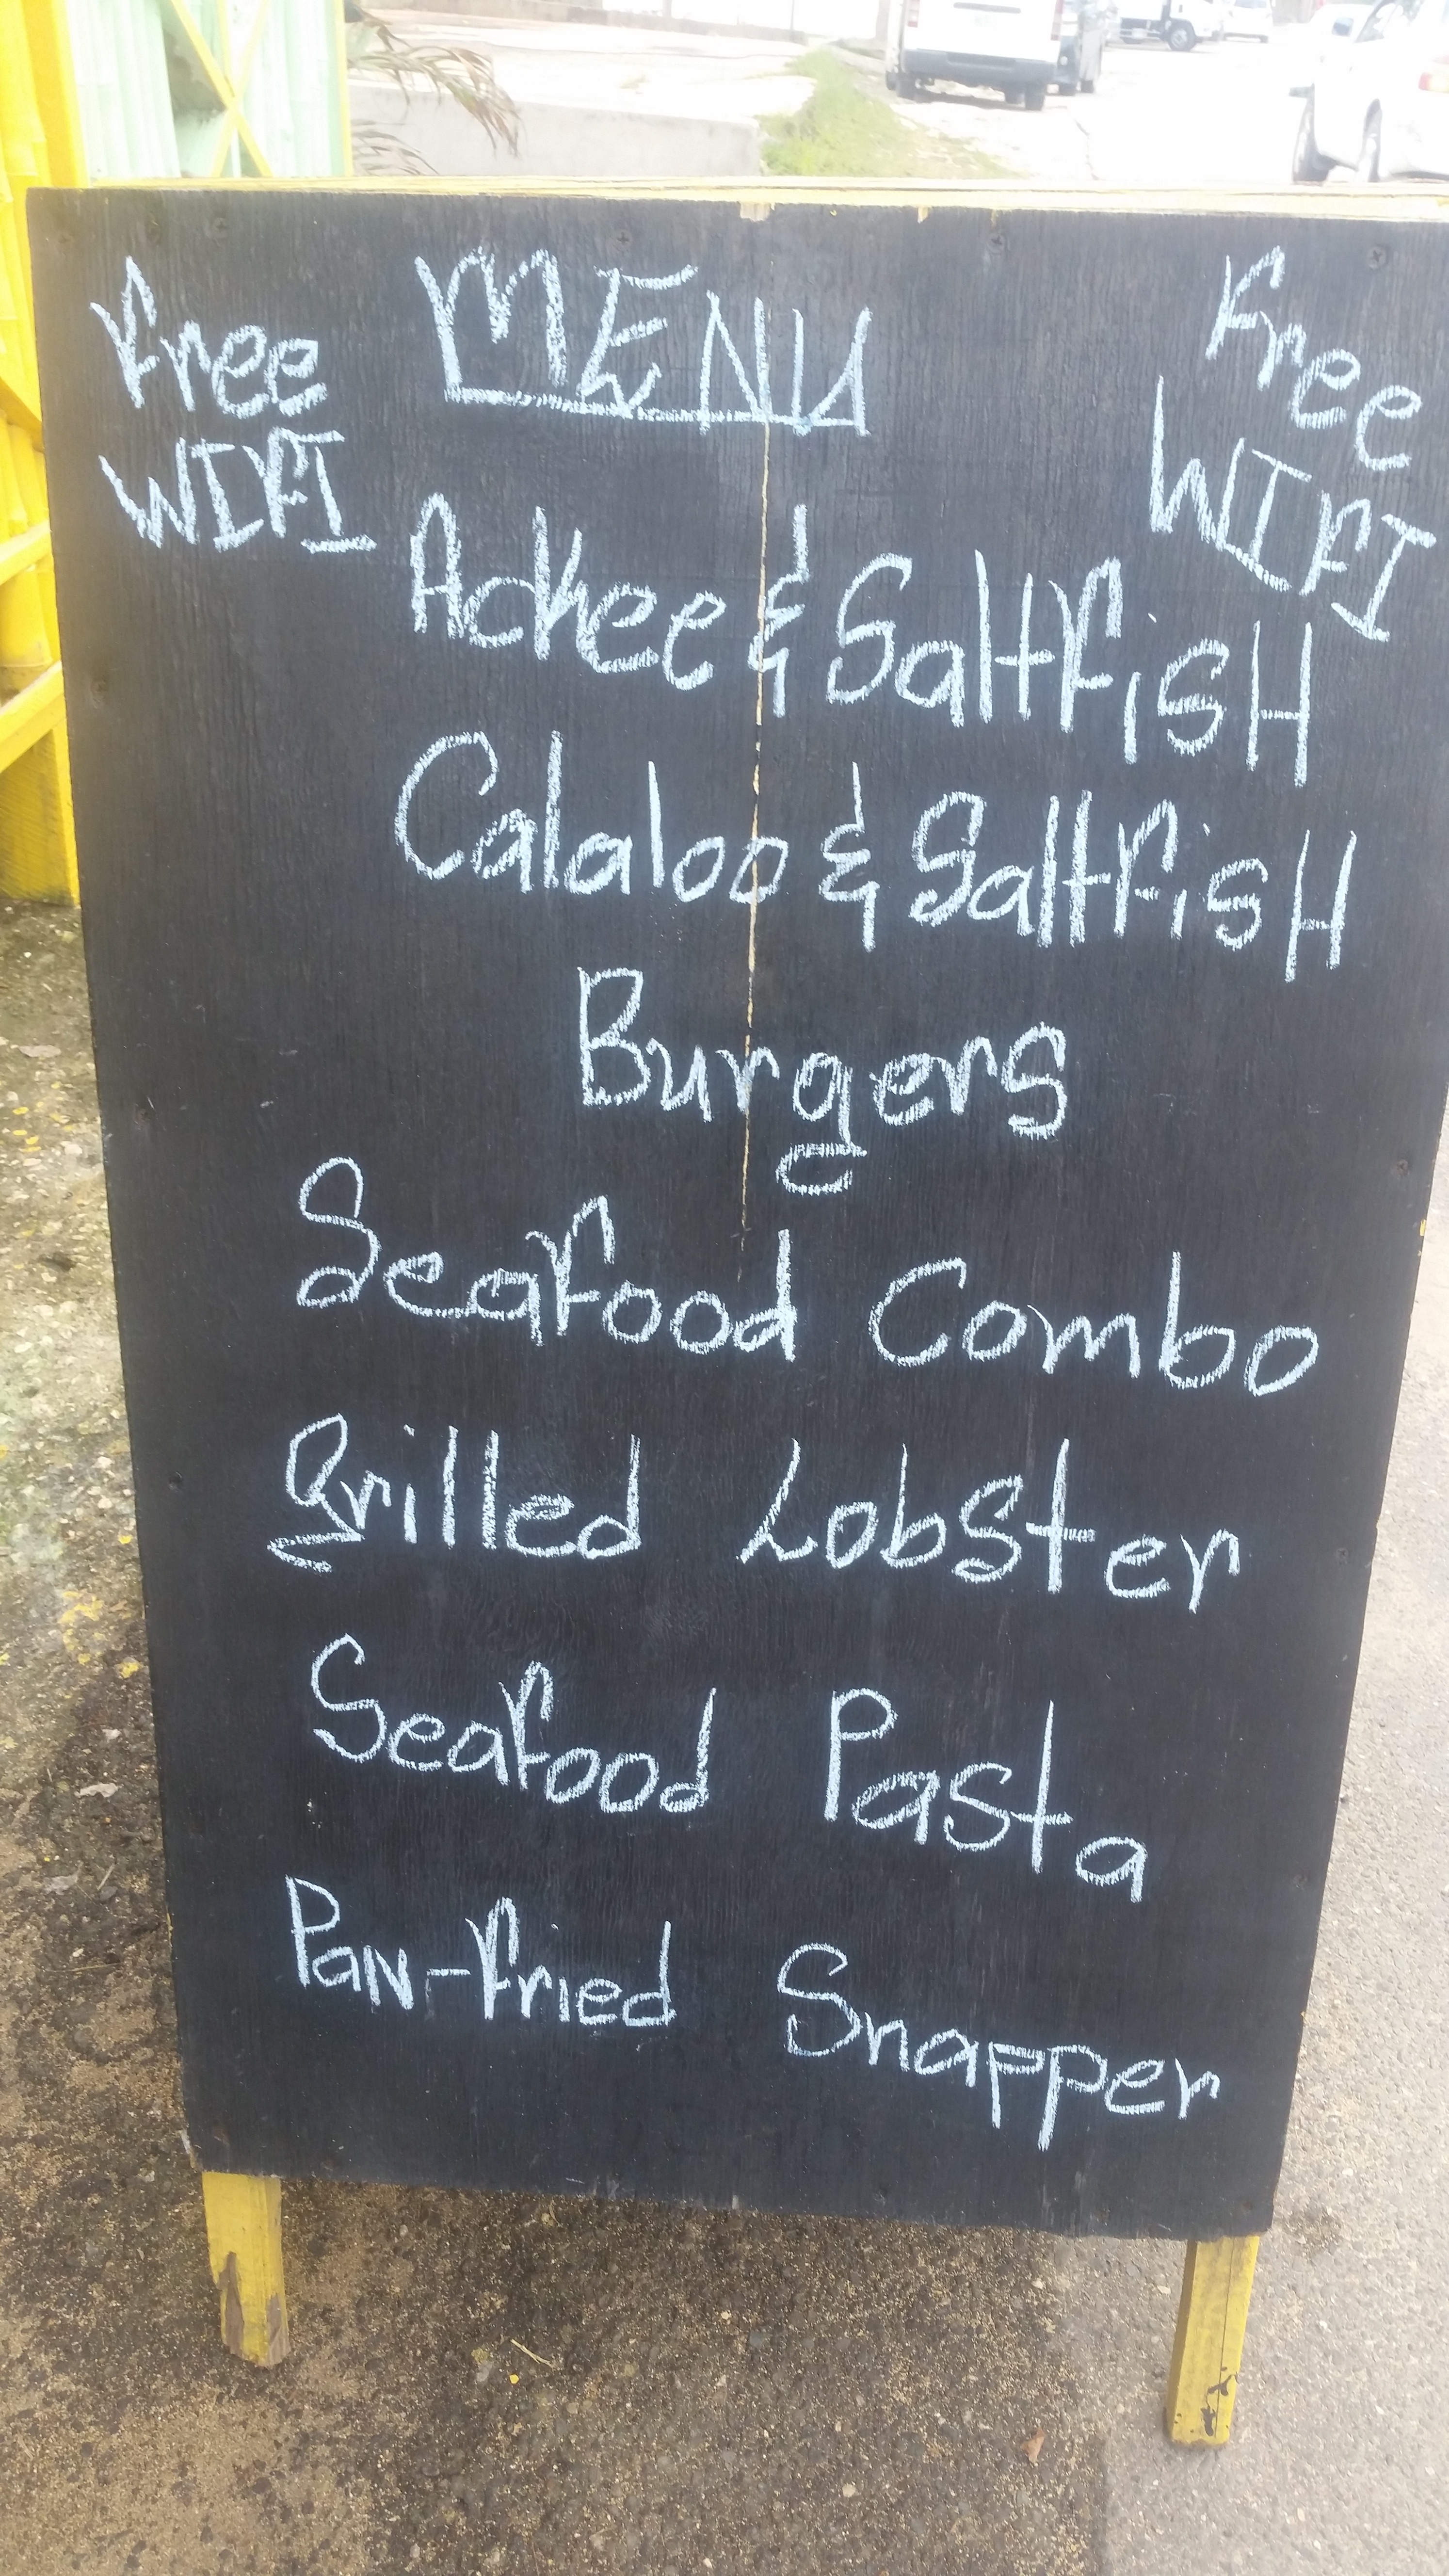 Free MENU Free
WIFI WIFI
Ackee & SaltfisH
Calaloo & SaltfisH
Burgers
Seafood Combo
Grilled Lobster
Seafood Pasta
PaN-fried Snapper